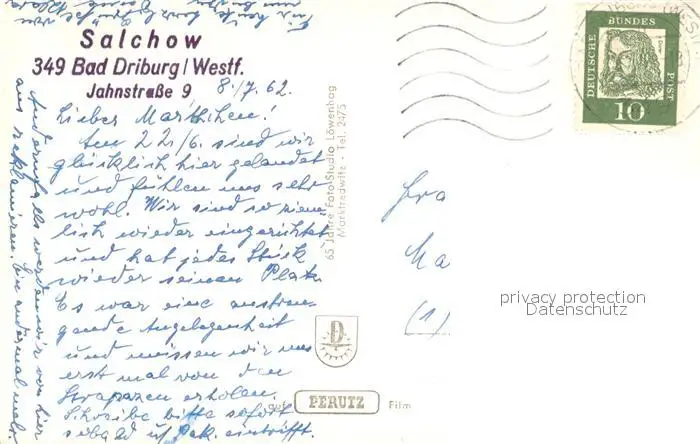 Salchow
349 Bad Driburg/Westf.
Jahnstraße 9
8./7. 62.
Liebes Marthchen!
Am 22/6. sind wir
glücklich hier gelandet
und fühlen uns sehr
wohl. Wir sind so ziem-
lich wieder eingerichtet
und hat jedes Stück
wieder seinen Platz.
Es war eine anstren-
gende Angelegenheit
und müssen wir uns
erst mal von den
Strapazen erholen.
Schreibe bitte sofort
sobald
eintrifft.
Andernfalls werden wir von hier
aus reklamieren. Ein andermal mehr
Für heute
65 Jahre Foto-Studio Löwenhag
Marktredwitz - Tel. 2475
auf PERUTZ Film
D
DEUTSCHE
BUNDES
POST
10
Fra
Ma
(1)
privacy protection
Datenschutz